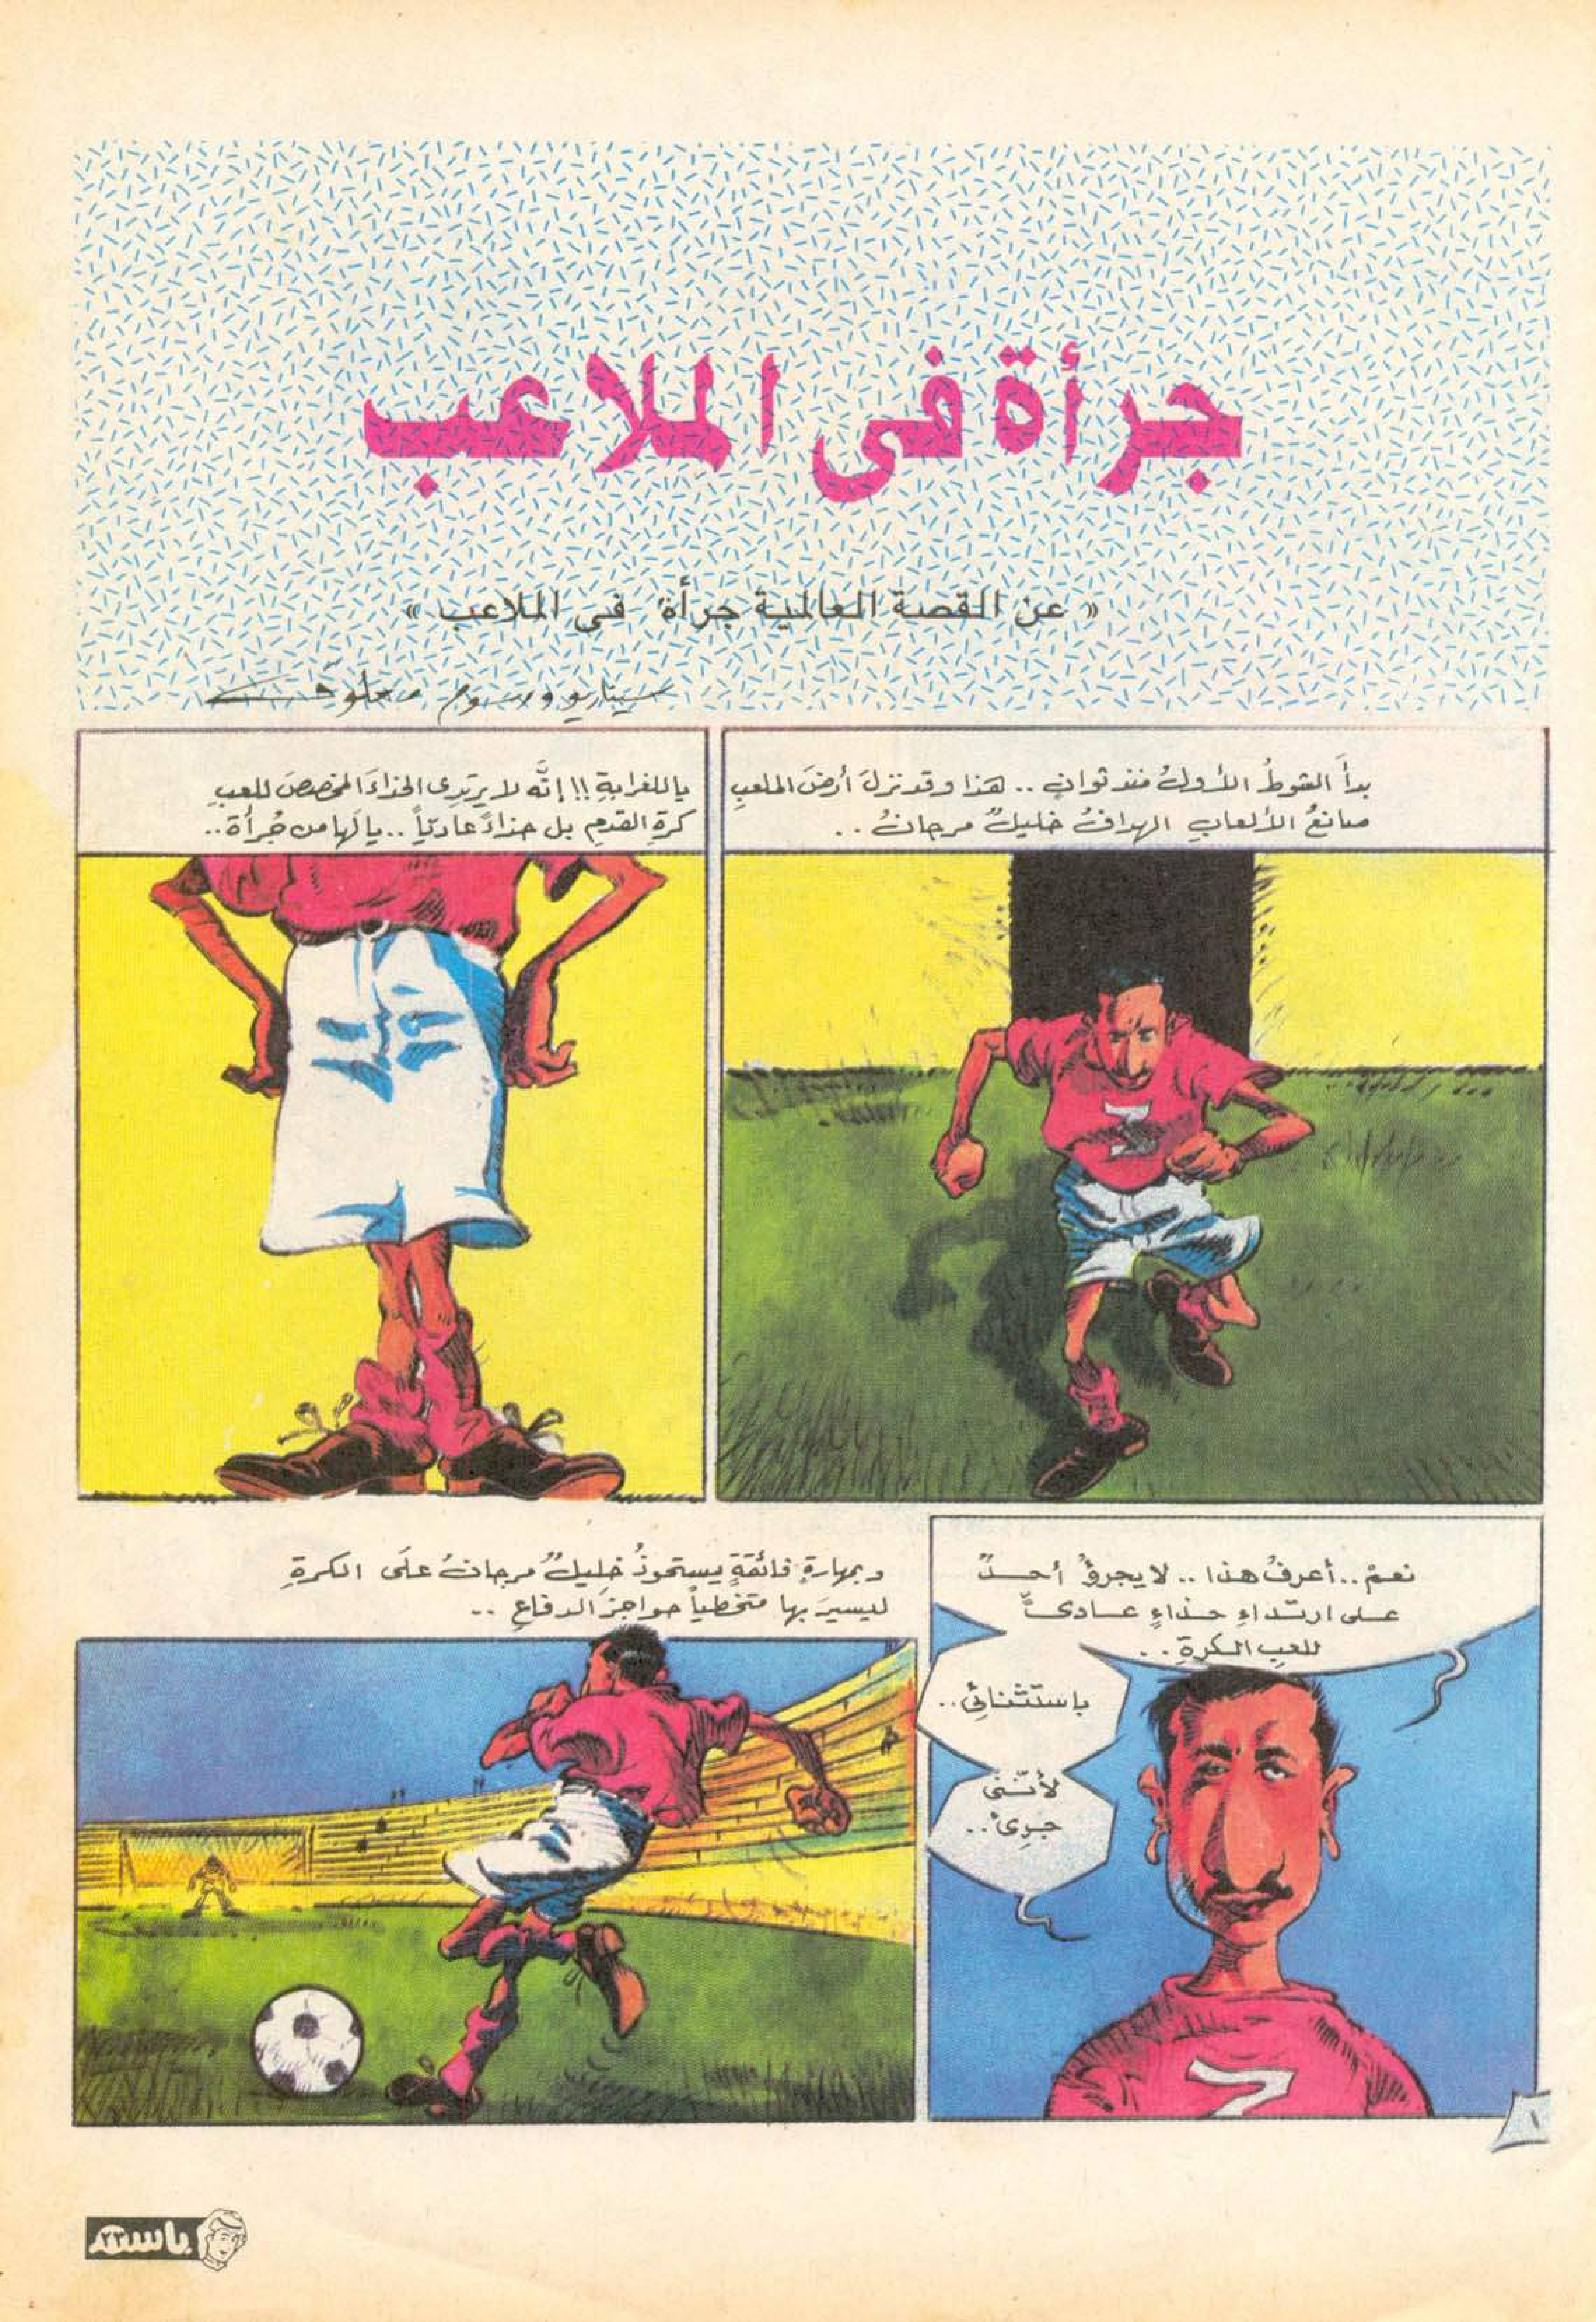 جرأة فى الملاعب
« عن القصة العالمية جرأة فى الملاعب »
سيناريو ورسوم معلوف
بدأَ الشوطُ الأولُ منذ ثوانٍ .. هذا وقد نزلَ أرضَ الملعبِ
صانعُ الألعابِ الهدافُ خليلُ مرجانُ ..
ياللغرابةِ !! إنَّه لا يرتدِى الحذاءَ المخصصَ للعبِ
كرةِ القدمِ بل حذاءً عاديّاً .. يا لَها من جُرأة ..
نعمْ .. أعرفُ هذا .. لا يجرؤُ أحدٌ
على ارتداءِ حذاءٍ عادىٍّ
للعبِ الكرةِ ..
باستثنائِى ..
لأنَّنى
جرىءٌ ..
وبمهارةٍ فائقةٍ يستحوذُ خليلُ مرجانُ علَى الكرةِ
ليسيرَ بها متخطياً حواجزَ الدفاعِ ..
١
باسم